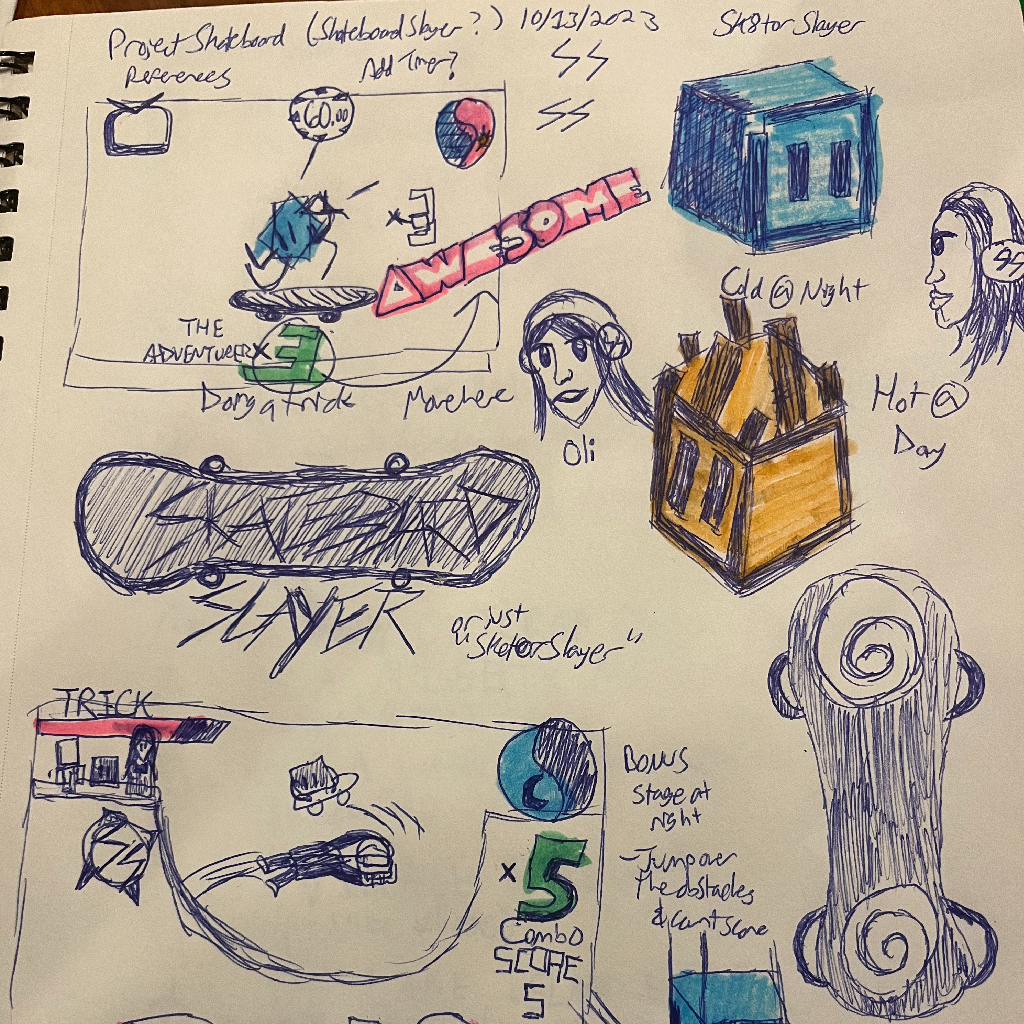 Project Skateboard (Skateboard Slayer?) 10/13/2023
Sk8tor Slayer
References
Add Timer?
60.00
AWESOME
THE
ADVENTURER x3
Doing a trick
Move here
Cold @ Night
Oli
Hot @
Day
SKATEBOARD
SLAYER
or just
"SketorSlayer"
TRICK
Bonus
Stage at
Night
- Jump over
the obstacles
& count score
x5
Combo
SCORE
5